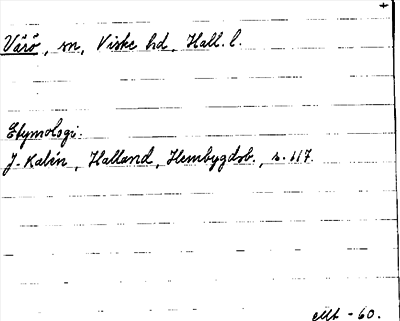 +
Värö, sn, Viske hd, Hall. l.
Etymologi:
J. Kalén, Halland, Hembygdsb., s. 117.
Mt -60.